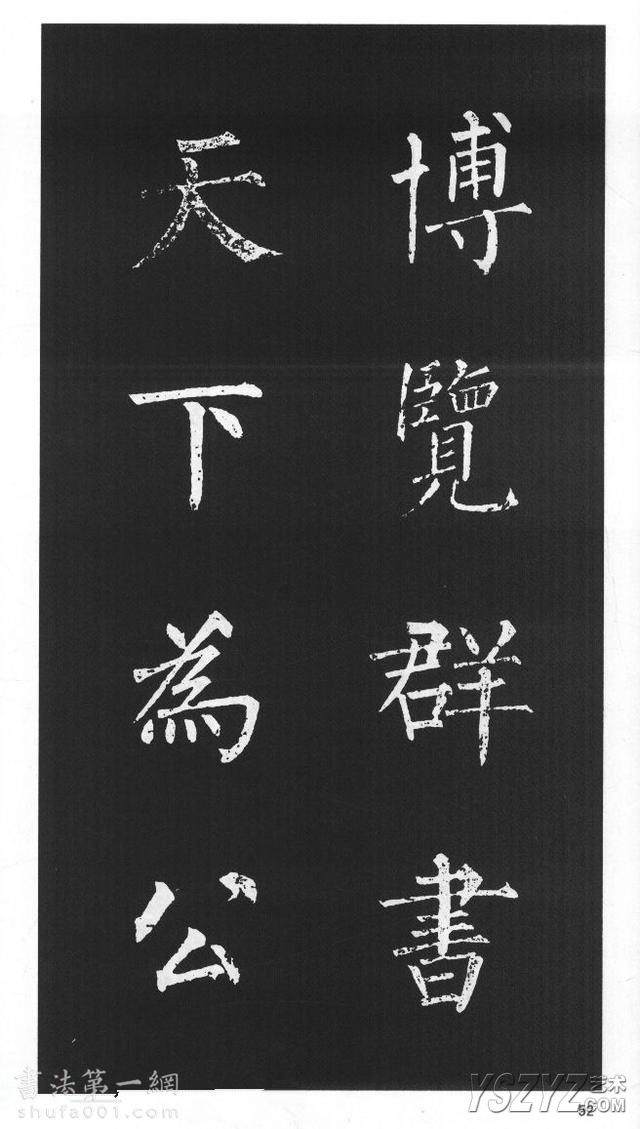 博覽群書
天下為公
書法第一網
shufa001.com
YSZYZ艺术
.COM
52